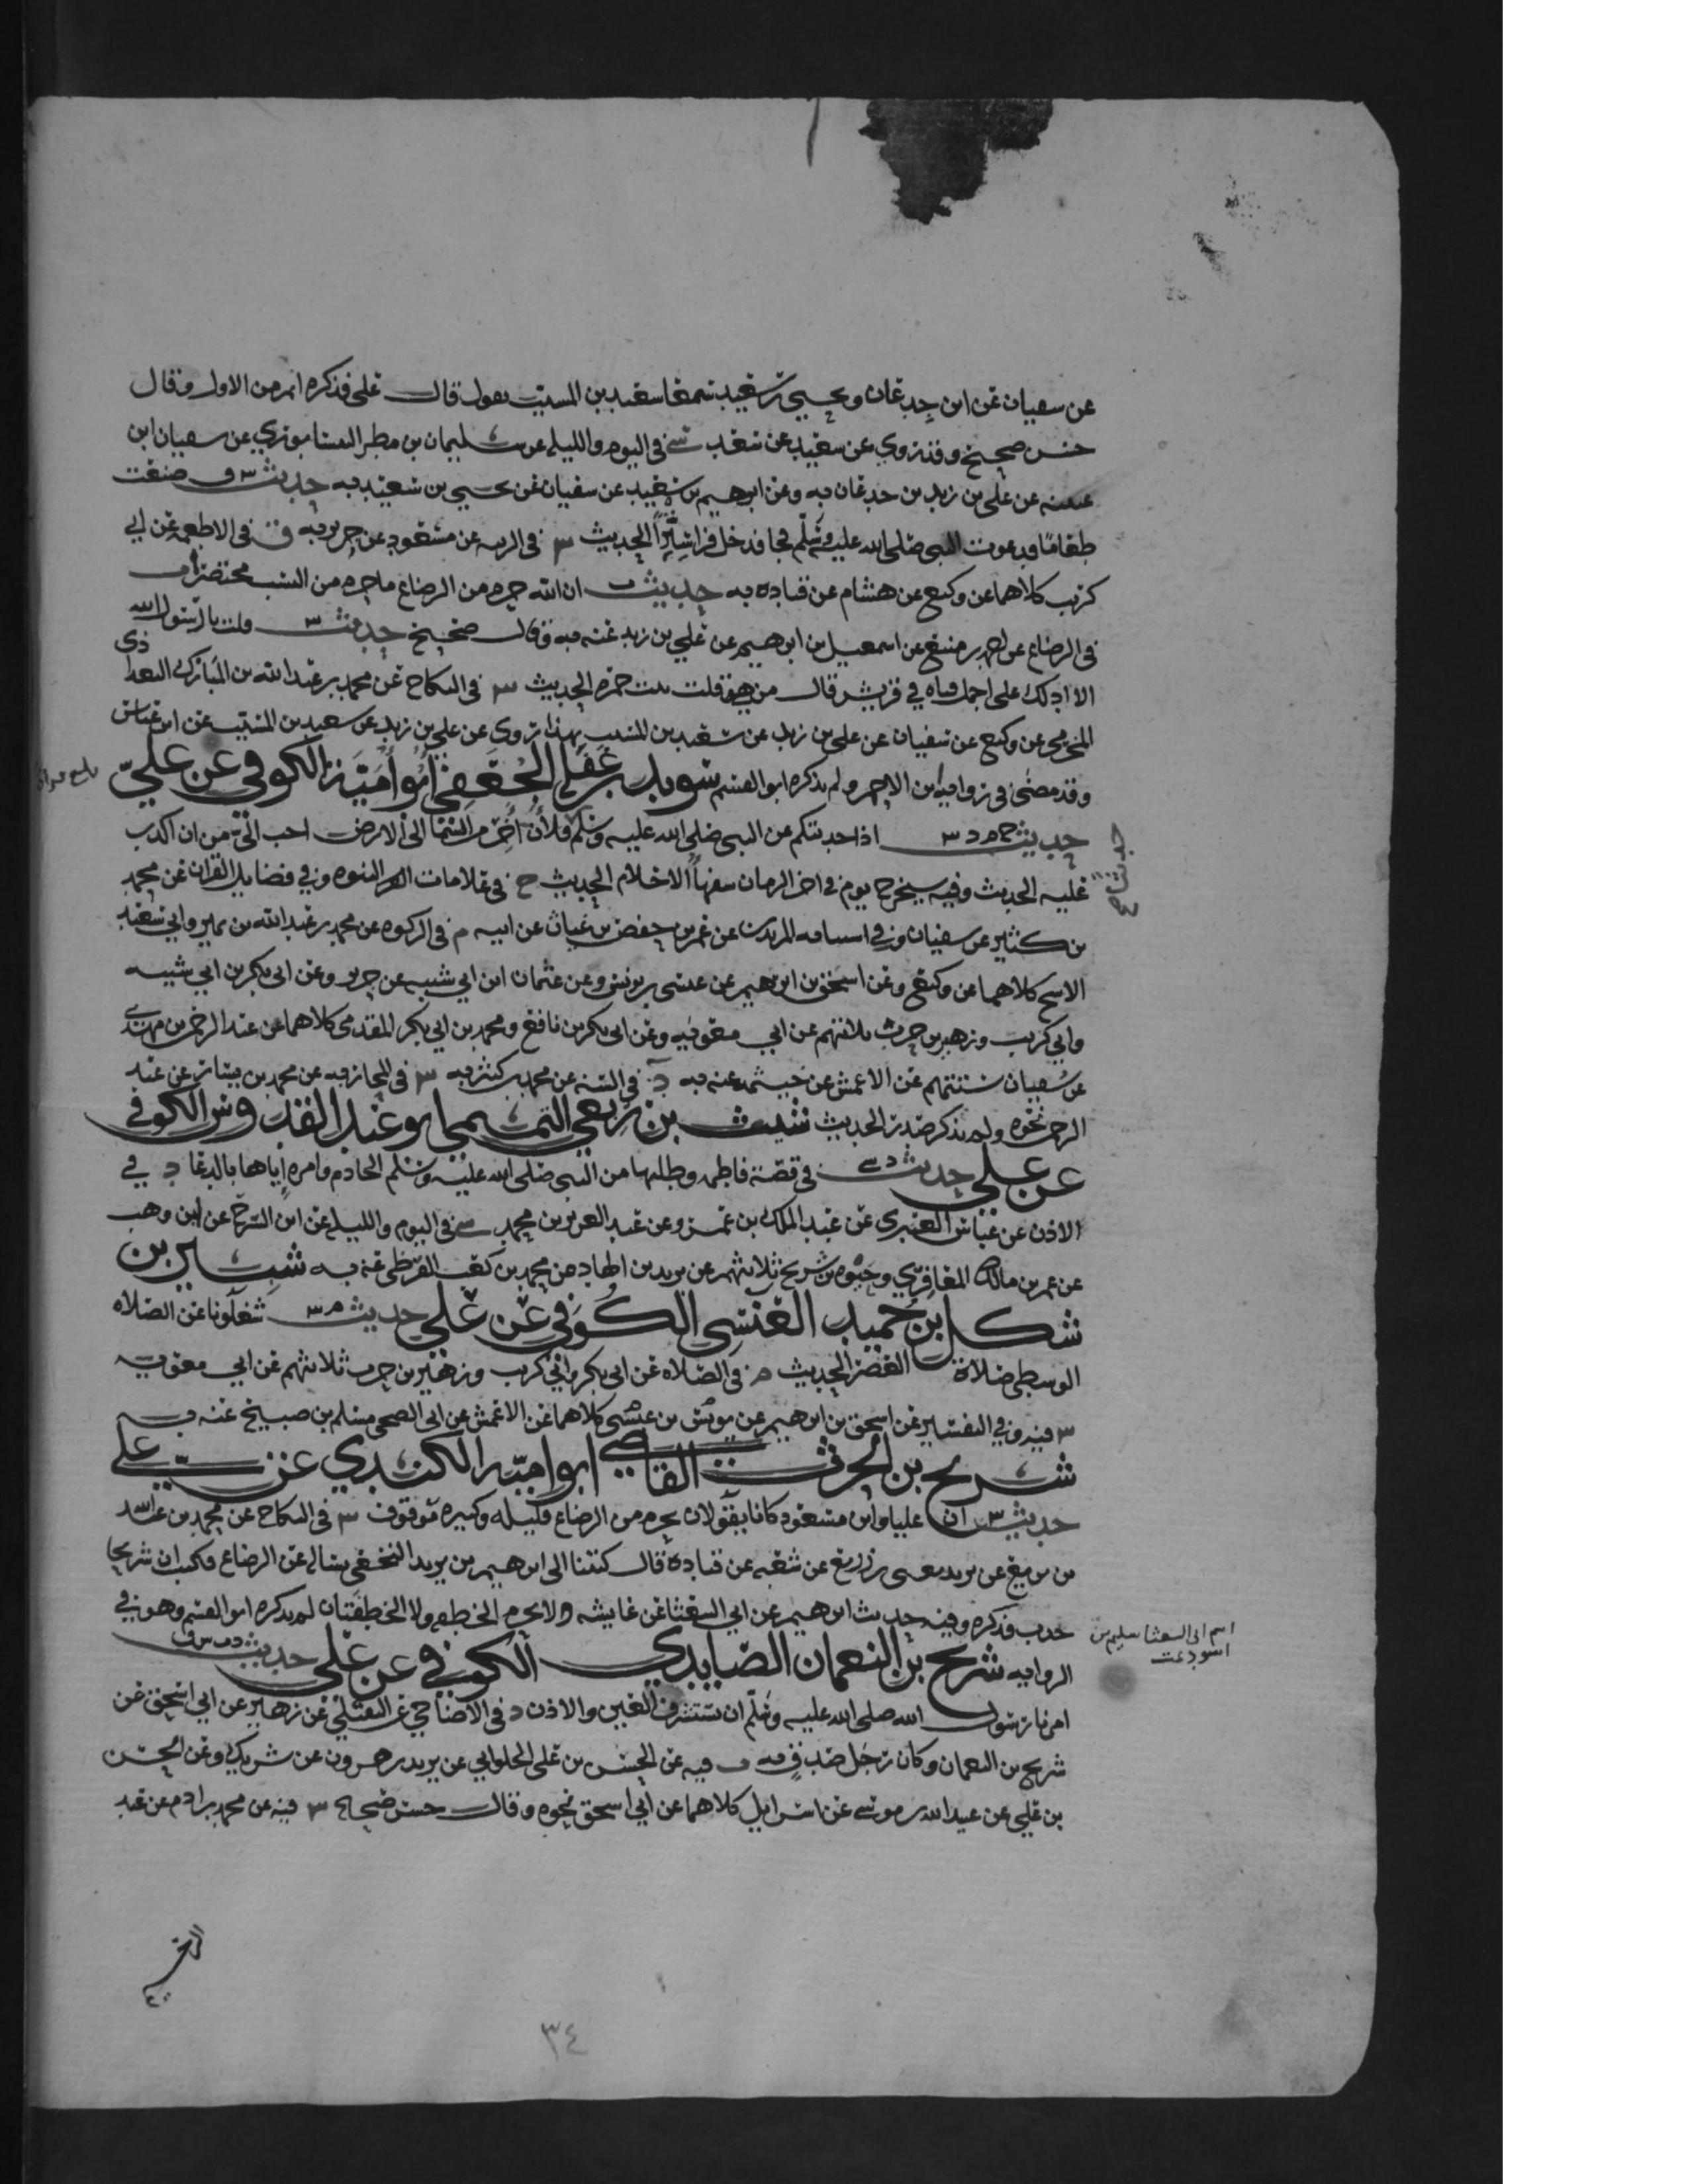 عن سفيان عن ابن جدعان ويحيى بن سعيد سمعا سعيد بن المسيب يقول قال علي فذكره اتم من الاول وقال
حسن صحيح وقد روي عن سعيد عن سعد سي في اليوم والليله عن سليمان بن مطر النيسابوري عن سفيان ابن
عيينه عن علي بن زيد بن جدعان به وعن ابرهيم بن سعيد عن سفيان عن يحيى بن سعيد به حديث س ق صنعت
طعاما فدعوت النبي صلى الله عليه وسلم فجا فدخل فراى سترا الحديث س في الزينه عن مسعود عن جرير به ق في الاطعمه عن ابي
كريب كلاهما عن وكيع عن هشام عن قتاده به حديث ت ان الله حرم من الرضاع ما حرم من النسب مختصر ت
في الرضاع عن احمد بن منيع عن اسمعيل بن ابرهيم عن علي بن زيد عنه به وقال صحيح حديث س قلت يا رسول الله
الا ادلك على اجمل فتاه في قريش قال من هي قلت بنت حمزه الحديث س في النكاح عن محمد بن عبد الله بن المبارك البغدادي
المخرمي عن وكيع عن سفيان عن علي بن زيد عن سعيد بن المسيب بهذا وروي عن علي بن زيد عن سعيد بن المسيب عن ابن عباس
وقد مضى في روايه ابن الاحمر ولم يذكره ابو القسم سويد بن غفله الجعفي ابو اميه الكوفي عن علي
حديث خ م د س اذا حدثتكم عن النبي صلى الله عليه وسلم فلأن أخر من السما الى الارض احب الي من ان اكذب
عليه الحديث وفيه سيخرج قوم في اخر الزمان سفها الاحلام الحديث خ في علامات النبوه وفي فضايل القران عن محمد
بن كثير عن سفيان وفي استتابه المرتدين عن عمر بن حفص بن غياث عن ابيه م في الزكوه عن محمد بن عبد الله بن نمير وابي سعيد
الاشج كلاهما عن وكيع وعن اسحق بن ابرهيم عن عيسى بن يونس وعن عثمان ابن ابي شيبه عن جرير وعن ابي بكر بن ابي شيبه
وابي كريب وزهير بن حرب ثلاثتهم عن ابي معويه وعن ابي بكر بن نافع ومحمد بن ابي بكر المقدمي كلاهما عن عبد الرحمن بن مهدي
عن سفيان ستتهم عن الاعمش عن خيثمه عنه به د في السنه عن محمد بن كثير به س في المحاربه عن محمد بن بشار عن عبد
الرحمن نحوه ولم يذكر صدر الحديث شبث بن ربعي التميمي ابو عبد القدوس الكوفي
عن علي حديث د سي في قصة فاطمه وطلبها من النبي صلى الله عليه وسلم الخادم وامره اياها بالدعا د في
الادب عن عباس العنبري عن عبد الملك بن عمرو عن عبد العزيز بن محمد سي في اليوم والليله عن ابن السرح عن ابن وهب
عن عمر بن مالك المعافري وحيوه بن شريح ثلاثتهم عن يزيد بن الهاد عن محمد بن كعب القرظي عنه به شتير بن
شكل بن حميد العبسي الكوفي عن علي حديث م س شغلونا عن الصلاه
الوسطى صلاة العصر الحديث م في الصلاه عن ابي بكر وابي كريب وزهير بن حرب ثلاثتهم عن ابي معويه
س فيه وفي التفسير عن اسحق بن ابرهيم عن عيسى كلاهما عن الاعمش عن ابي الضحى مسلم بن صبيح عنه به
شريح بن الحرث القاضي ابو اميه الكندي عن علي
حديث س ان عليا وابن مسعود كانا يقولان يحرم من الرضاع قليله وكثيره موقوف س في النكاح عن محمد بن عبد الله
بن بزيع عن يزيد يعني بن زريع عن شعبه عن قتادة قال كتبنا الى ابرهيم بن يزيد النخعي نساله عن الرضاع فكتب ان شريحا
حدث فذكره وفيه حديث ابرهيم عن ابي الشعثا عن عايشه لا يحرم الخطفه ولا الخطفتان لم يذكره ابو القسم وهو في
الروايه شريح بن النعمان الصايدي الكوفي عن علي حديث د ت س ق
امرنا رسول الله صلى الله عليه وسلم ان نستشرف العين والاذن د في الاضاحي عن النفيلي عن زهير عن ابي اسحق عن
شريح بن النعمان وكان رجل صدق به ت فيه عن الحسن بن علي الحلواني عن يزيد بن هرون عن شريك وعن الحسن
بن علي عن عبيد الله بن موسى عن اسرايل كلاهما عن ابي اسحق نحوه وقال حسن صحيح س فيه عن محمد بن ادم عن عبد
اسم ابي الشعثا سليم بن
اسود
٣٤